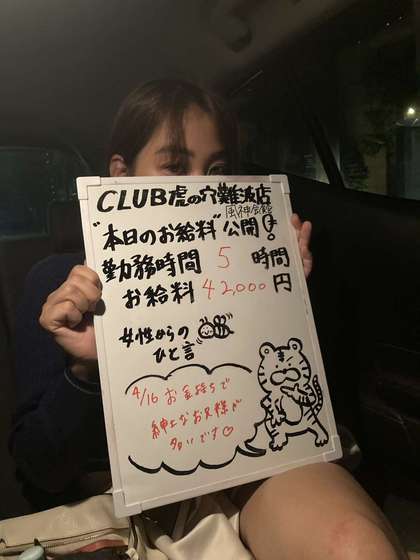 CLUB虎の穴難波店
風神会館
"本日のお給料"公開!
勤務時間 5 時間
お給料 42,000 円
女性からの
ひと言
4/16 お金持ちで
紳士なお客様が
多いです♡